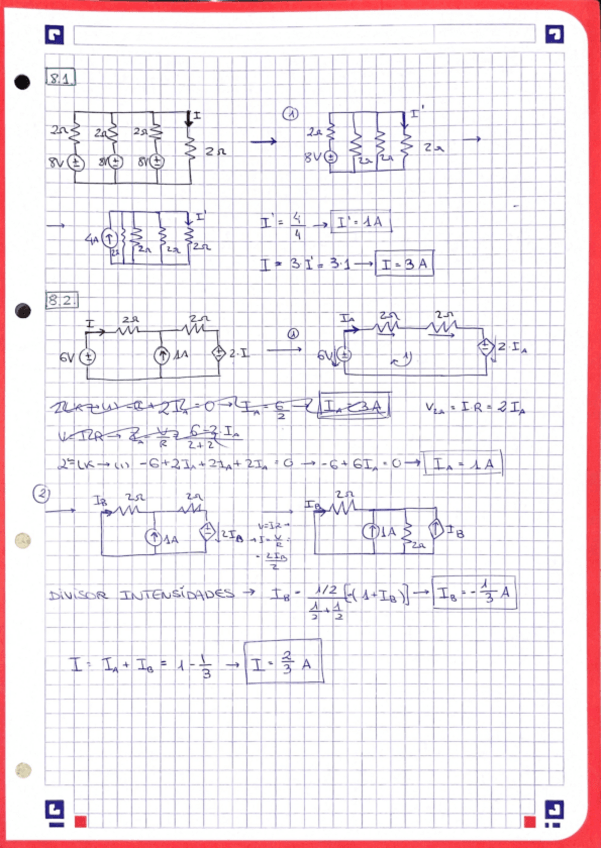 8.1.
I
2Ω 2Ω 2Ω 2Ω
8V 8V 8V
①
I'
2Ω 2Ω 2Ω 2Ω
8V
4A 2Ω 2Ω 2Ω 2Ω I'
I' = 4/4 → I' = 1A
I = 3·I' = 3·1 → I = 3A
8.2.
I 2Ω 2Ω
6V 1A 2·I
①
I_A 2Ω 2Ω
6V 1) 2·I_A
2ºLK → (1) -6 + 2I_A = 0 → I_A = 6/2 → I_A = 3A
V_2Ω = I·R = 2I_A
V = I·R → I_A = V/R = 6-2·I_A / 2+2
2ºLK → (1) -6+2I_A+2I_A+2I_A = 0 → -6+6I_A = 0 → I_A = 1A
②
I_B 2Ω 2Ω
1A 2I_B
V=I·R → I = V/R = 2I_B/2
I_B 2Ω
1A 2Ω I_B
DIVISOR INTENSIDADES → I_B = 1/2 / (1/2 + 1/2) [-(1+I_B)] → I_B = -1/3 A
I = I_A + I_B = 1 - 1/3 → I = 2/3 A